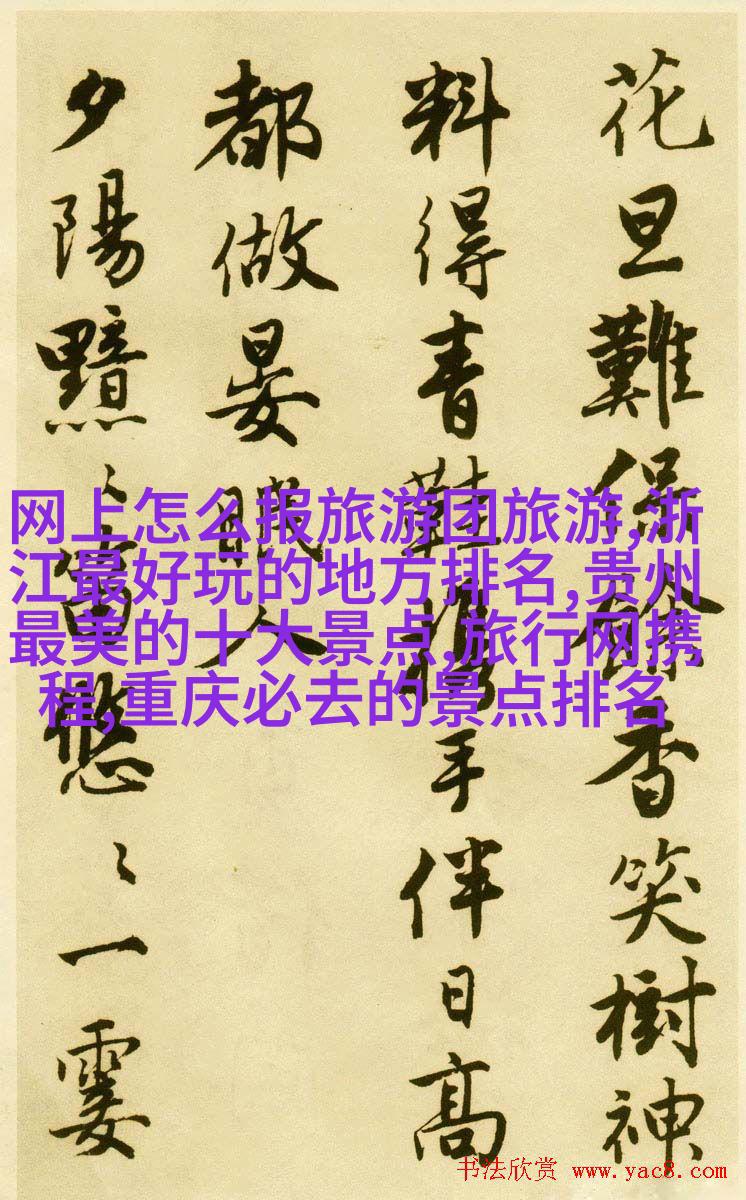 花旦難保餘香笑樹神
料得青鞋攜手伴日高
都做晏眠人
夕陽黯〻笛悠〻一霎
网上怎么报旅游团旅游,浙
江最好玩的地方排名,贵州
最美的十大景点,旅行网携
程,重庆必去的景点排名
书法欣赏 www.yac8.com